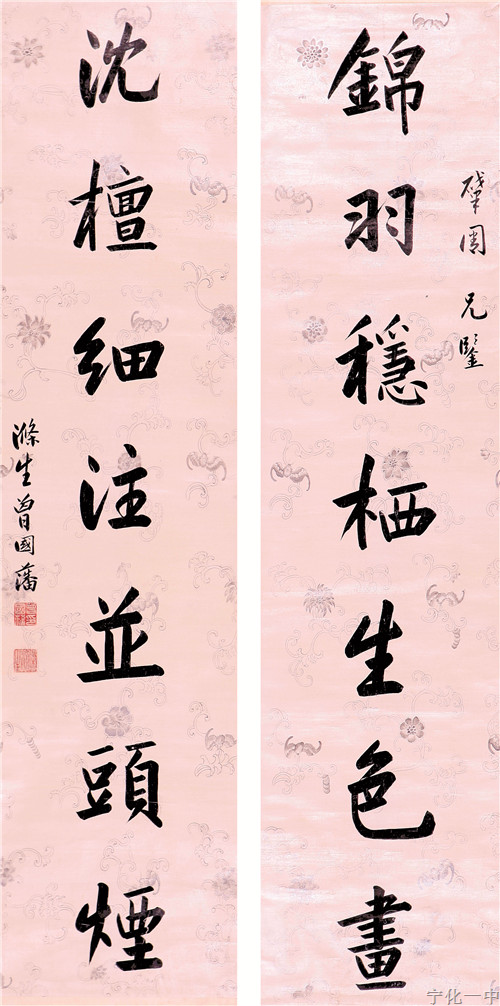 錦羽穩栖生色畫
犀圃 兄鑒
沈檀细注並頭煙
滌生曾國藩
宁化一中